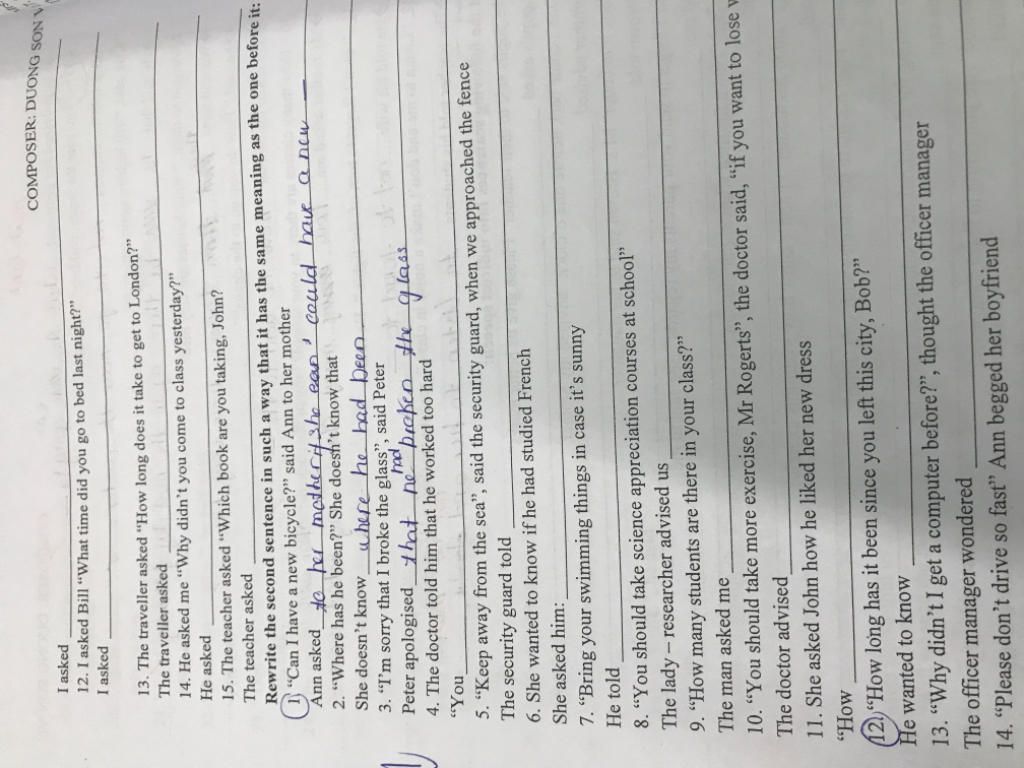 COMPOSER: DUONG SON V
I asked
12. I asked Bill “What time did you go to bed last night?”
I asked
13. The traveller asked “How long does it take to get to London?”
The traveller asked
14. He asked me “Why didn’t you come to class yesterday?”
He asked
15. The teacher asked “Which book are you taking, John?
The teacher asked
Rewrite the second sentence in such a way that it has the same meaning as the one before it:
1. “Can I have a new bicycle?” said Ann to her mother
Ann asked to her mother if she could have a new
2. “Where has he been?” She doesn’t know that
She doesn’t know where he had been
3. “I’m sorry that I broke the glass”, said Peter
Peter apologised that he had broken the glass
4. The doctor told him that he worked too hard
“You
5. “Keep away from the sea”, said the security guard, when we approached the fence
The security guard told
6. She wanted to know if he had studied French
She asked him:
7. “Bring your swimming things in case it’s sunny
He told
8. “You should take science appreciation courses at school”
The lady – researcher advised us
9. “How many students are there in your class?”
The man asked me
10. “You should take more exercise, Mr Rogerts”, the doctor said, “if you want to lose w
The doctor advised
11. She asked John how he liked her new dress
“How
12. “How long has it been since you left this city, Bob?”
He wanted to know
13. “Why didn’t I get a computer before?”, thought the officer manager
The officer manager wondered
14. “Please don’t drive so fast” Ann begged her boyfriend